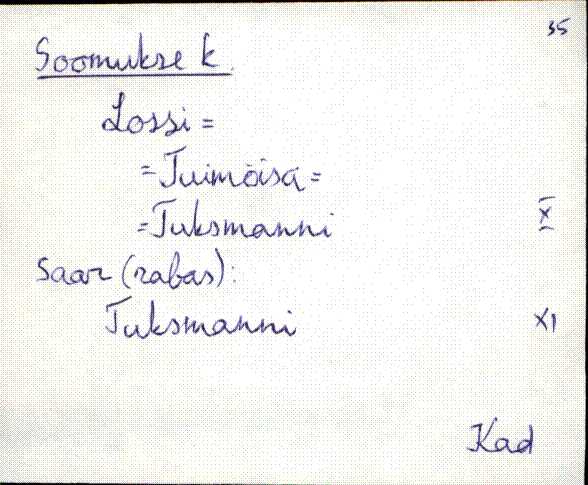 35
Soomukse k.
Lossi =
= Tuimõisa =
= Tuksmanni X
Saar (rabas):
Tuksmanni XI
Kad